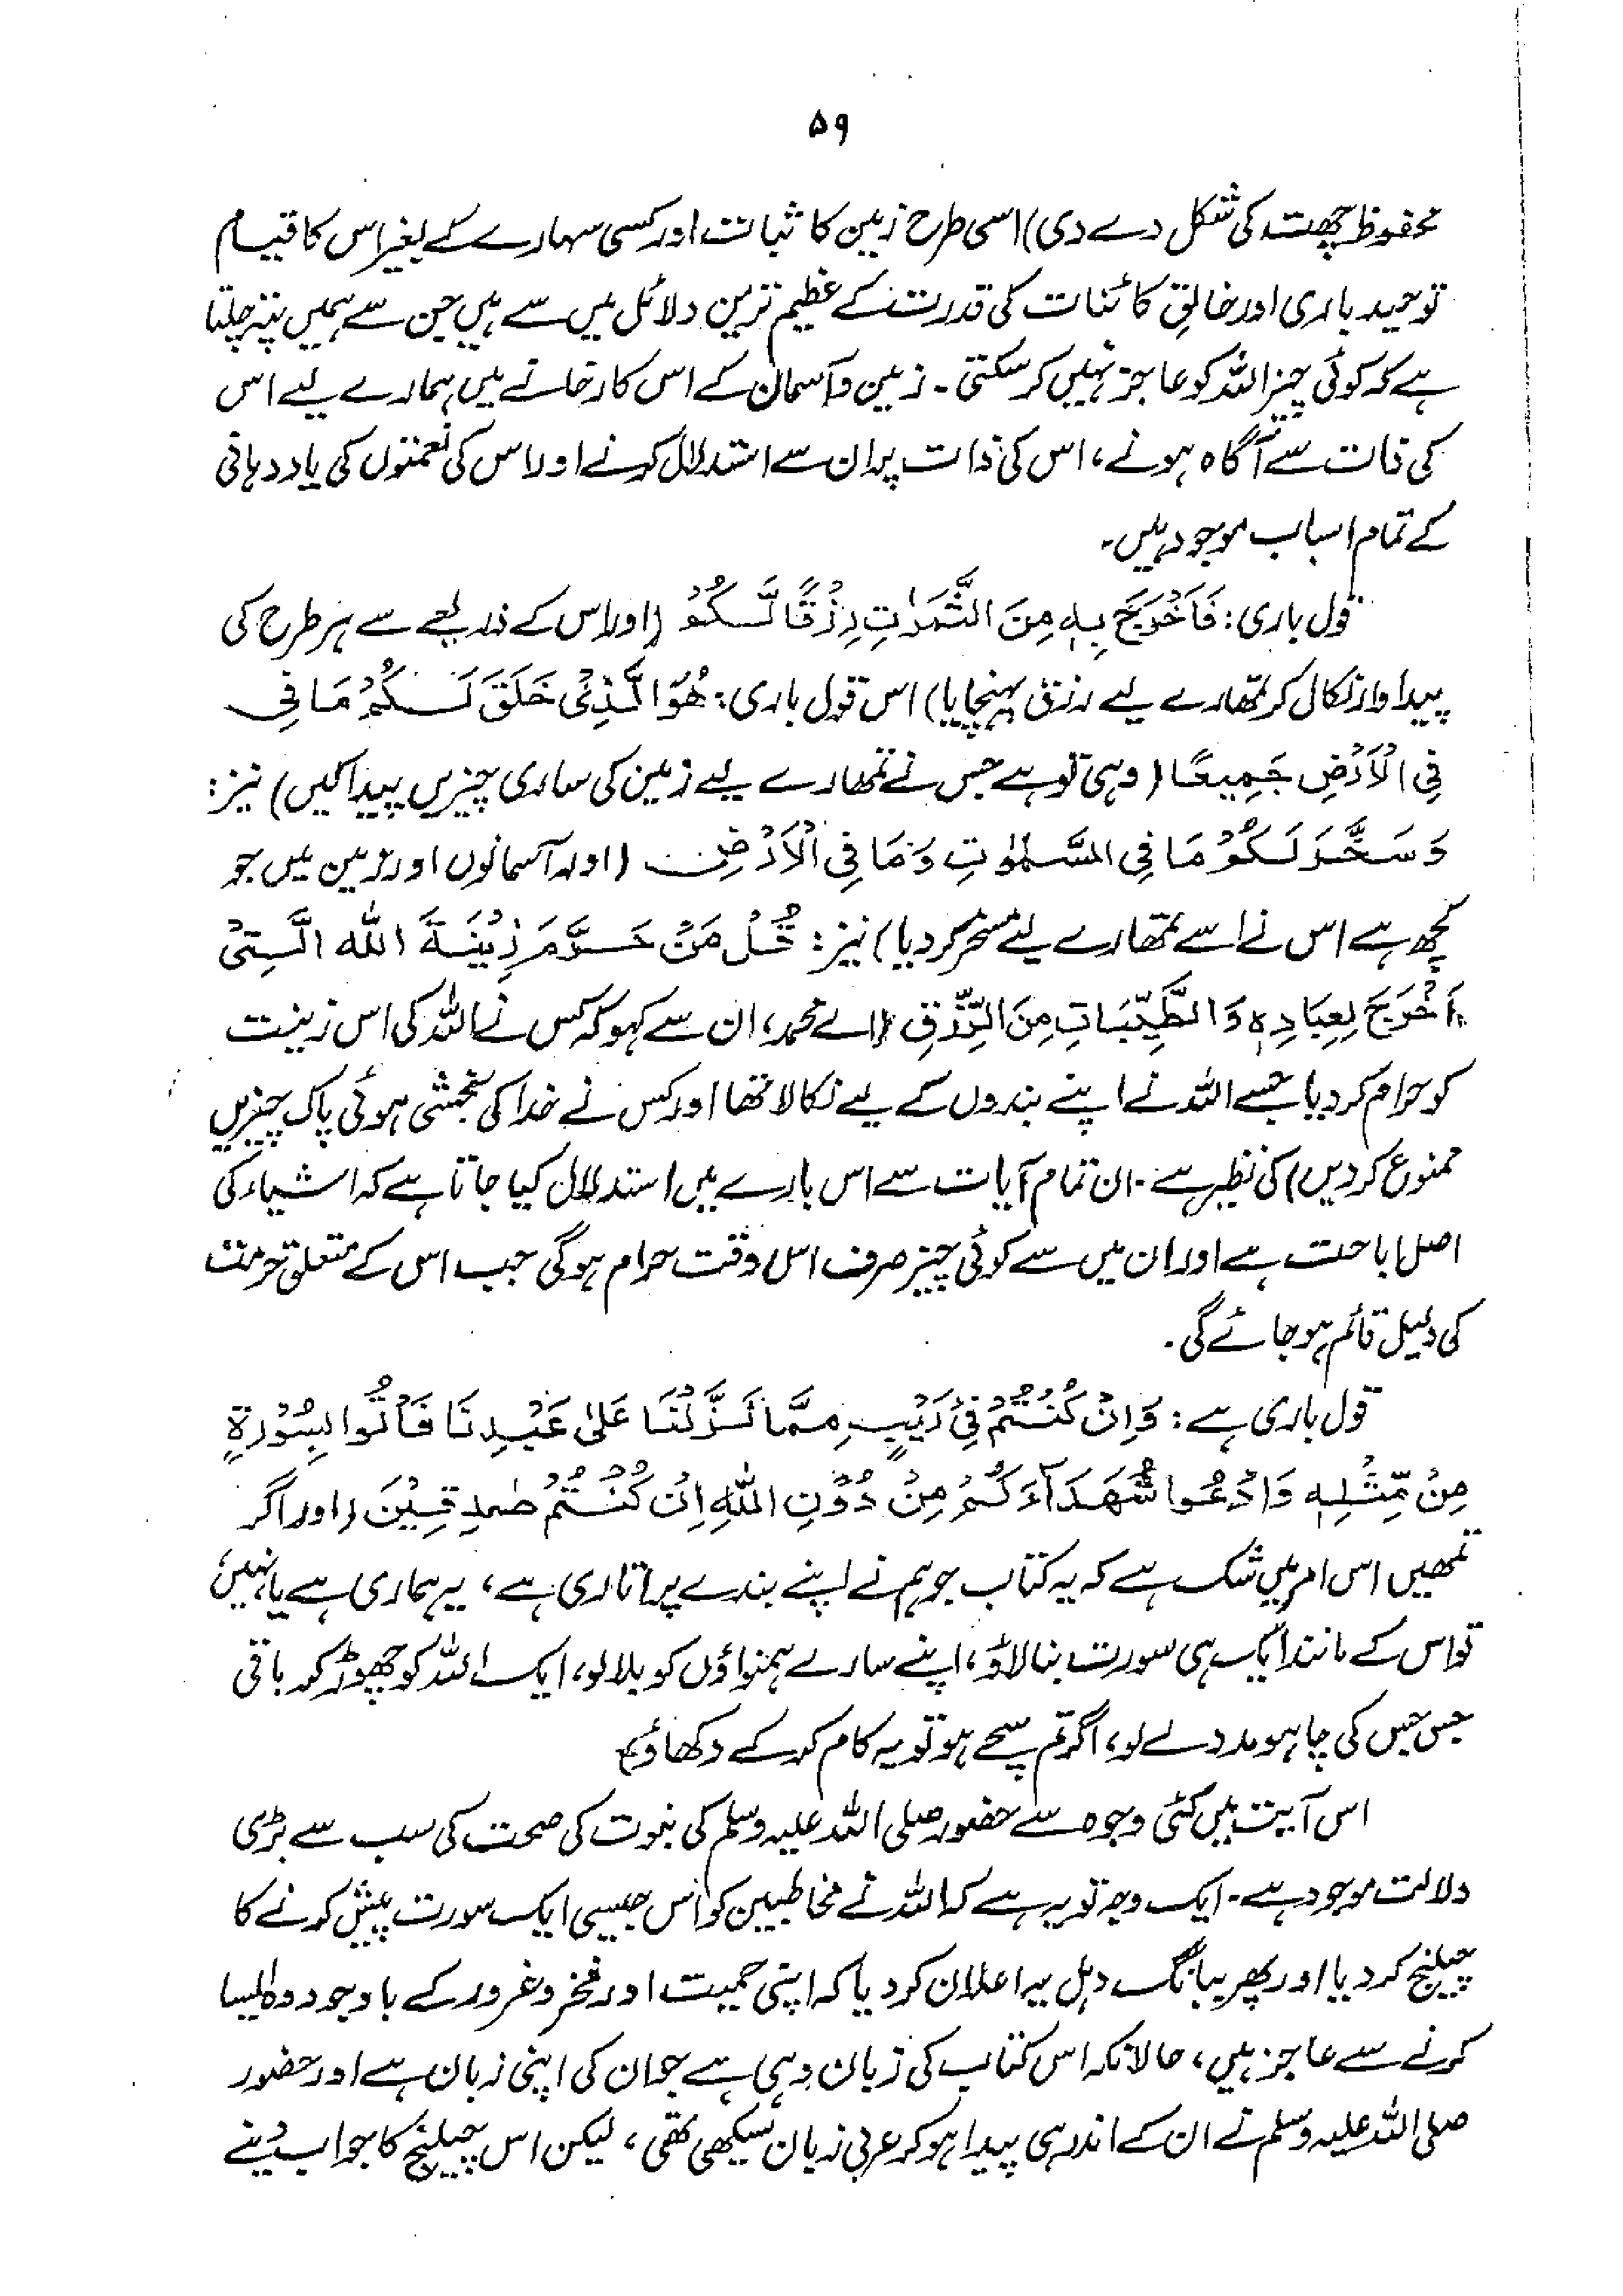 ۵۹
محفوظ چھت کی شکل دے دی) اسی طرح زمین کا ثبات اور کسی سہارے کے بغیر اس کا قیام
توحید باری اور خالقِ کائنات کی قدرت کے عظیم ترین دلائل میں سے ہیں جن سے ہمیں پتہ چلتا
ہے کہ کوئی چیز اللہ کو عاجز نہیں کر سکتی۔ زمین و آسمان کے اس کارخانے میں ہمارے لیے اس
کی ذات سے آگاہ ہونے، اس کی ذات پر ان سے استدلال کرنے اور اس کی نعمتوں کی یاد دہانی
کے تمام اسباب موجود ہیں۔
قول باری: فَاَخْرَجَ بِهٖ مِنَ الثَّمَرٰتِ رِزْقًا لَّكُمْ (اور اس کے ذریعے سے ہر طرح کی
پیداوار نکال کر تمھارے لیے رزق پہنچایا) اس قول باری: هُوَ الَّذِیْ خَلَقَ لَكُمْ مَا فِی
فِی الْاَرْضِ جَمِیعًا (وہی تو ہے جس نے تمھارے لیے زمین کی ساری چیزیں پیدا کیں) نیز:
وَ سَخَّرَ لَكُمْ مَا فِی السَّمٰوٰتِ وَمَا فِی الْاَرْضِ (اور آسمانوں اور زمین میں جو
کچھ ہے اس نے اسے تمھارے لئے مسخر کر دیا) نیز: قُلْ مَنْ حَرَّمَ زِیْنَةَ اللّٰه الَّتِیْ
اَخْرَجَ لِعِبَادِهٖ وَ الطَّیِّبَاتِ مِنَ الرِّزْقِ (اے محمد، ان سے کہو کہ کس نے اللہ کی اس زینت
کو حرام کر دیا جسے اللہ نے اپنے بندوں کے لیے نکالا تھا اور کس نے خدا کی بخشی ہوئی پاک چیزیں
ممنوع کر دیں) کی نظیر ہے۔ ان تمام آیات سے اس بارے میں استدلال کیا جاتا ہے کہ اشیاء کی
اصل اباحت ہے اور ان میں سے کوئی چیز صرف اس وقت حرام ہوگی جب اس کے متعلق حرمت
کی دلیل قائم ہو جائے گی۔
قول باری ہے: وَ اِنْ كُنْتُمْ فِیْ رَیْبٍ مِمَّا نَزَّلْنَا عَلٰی عَبْدِنَا فَأْتُوا بِسُوْرَةٍ
مِنْ مِّثْلِهٖ وَادْعُوا شُهَدَآءَكُمْ مِنْ دُوْنِ اللّٰهِ اِنْ كُنْتُمْ صٰدِقِیْنَ (اور اگر
تمھیں اس امر میں شک ہے کہ یہ کتاب جو ہم نے اپنے بندے پر اتاری ہے، یہ ہماری ہے یا نہیں،
تو اس کے مانند ایک ہی سورت بنا لاؤ، اپنے سارے ہمنواؤں کو بلا لو، ایک اللہ کو چھوڑ کر باقی
جس جس کی چاہو مدد لے لو، اگر تم سچے ہو تو یہ کام کر کے دکھاؤ)
اس آیت میں کئی وجوہ سے حضور صلی اللہ علیہ وسلم کی نبوت کی صحت کی سب سے بڑی
دلالت موجود ہے۔ ایک وجہ تو یہ ہے کہ اللہ نے مخاطبین کو اس جیسی ایک سورت پیش کرنے کا
چیلنج کر دیا اور پھر ببانگ دہل یہ اعلان کر دیا کہ اپنی حمیت اور فخر و غرور کے باوجود وہ ایسا
کرنے سے عاجز ہیں، حالانکہ اس کتاب کی زبان وہی ہے جو ان کی اپنی زبان ہے اور حضور
صلی اللہ علیہ وسلم نے ان کے اندر ہی پیدا ہو کر عربی زبان سیکھی تھی، لیکن اس چیلنج کا جواب دینے